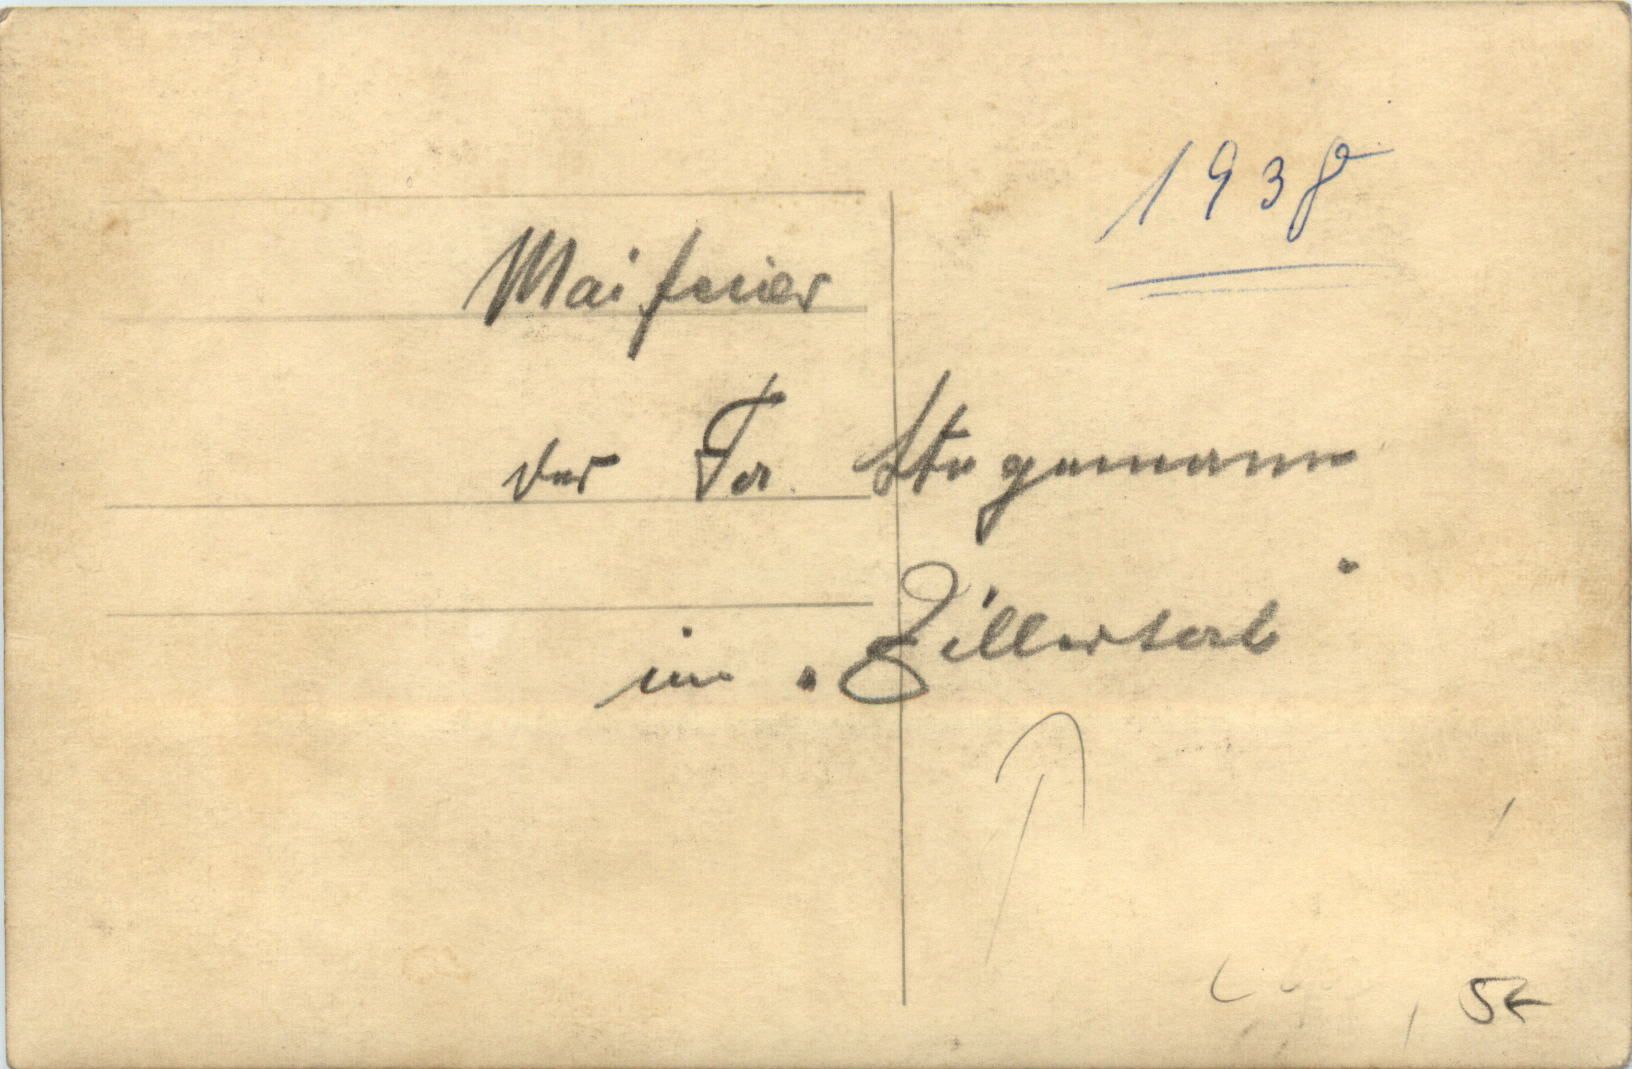 1938
Maifeier
der Fa. Stegemann
im „Zillertal"
5€